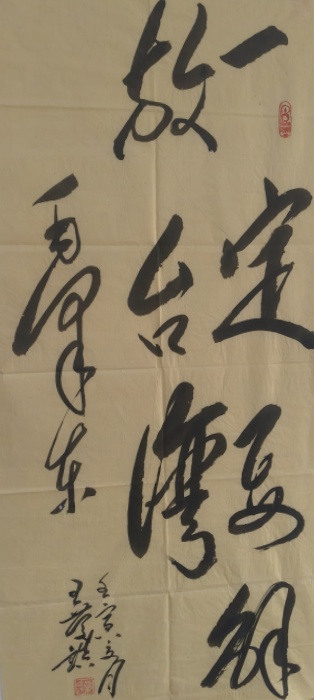 一定要解
放台湾
毛泽东
壬寅五月